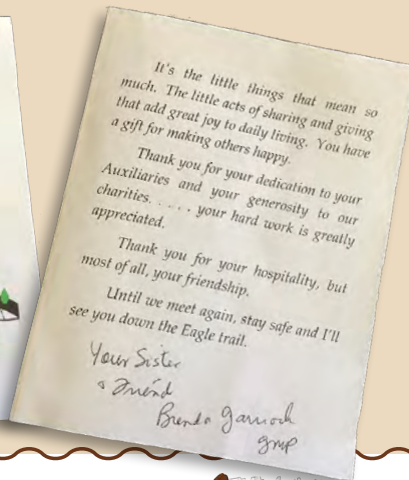 It's the little things that mean so
much. The little acts of sharing and giving
that add great joy to daily living. You have
a gift for making others happy.
Thank you for your dedication to your
Auxiliaries and your generosity to our
charities. . . . . your hard work is greatly
appreciated.
Thank you for your hospitality, but
most of all, your friendship.
Until we meet again, stay safe and I'll
see you down the Eagle trail.
Your Sister
& Friend
Brenda
gmp